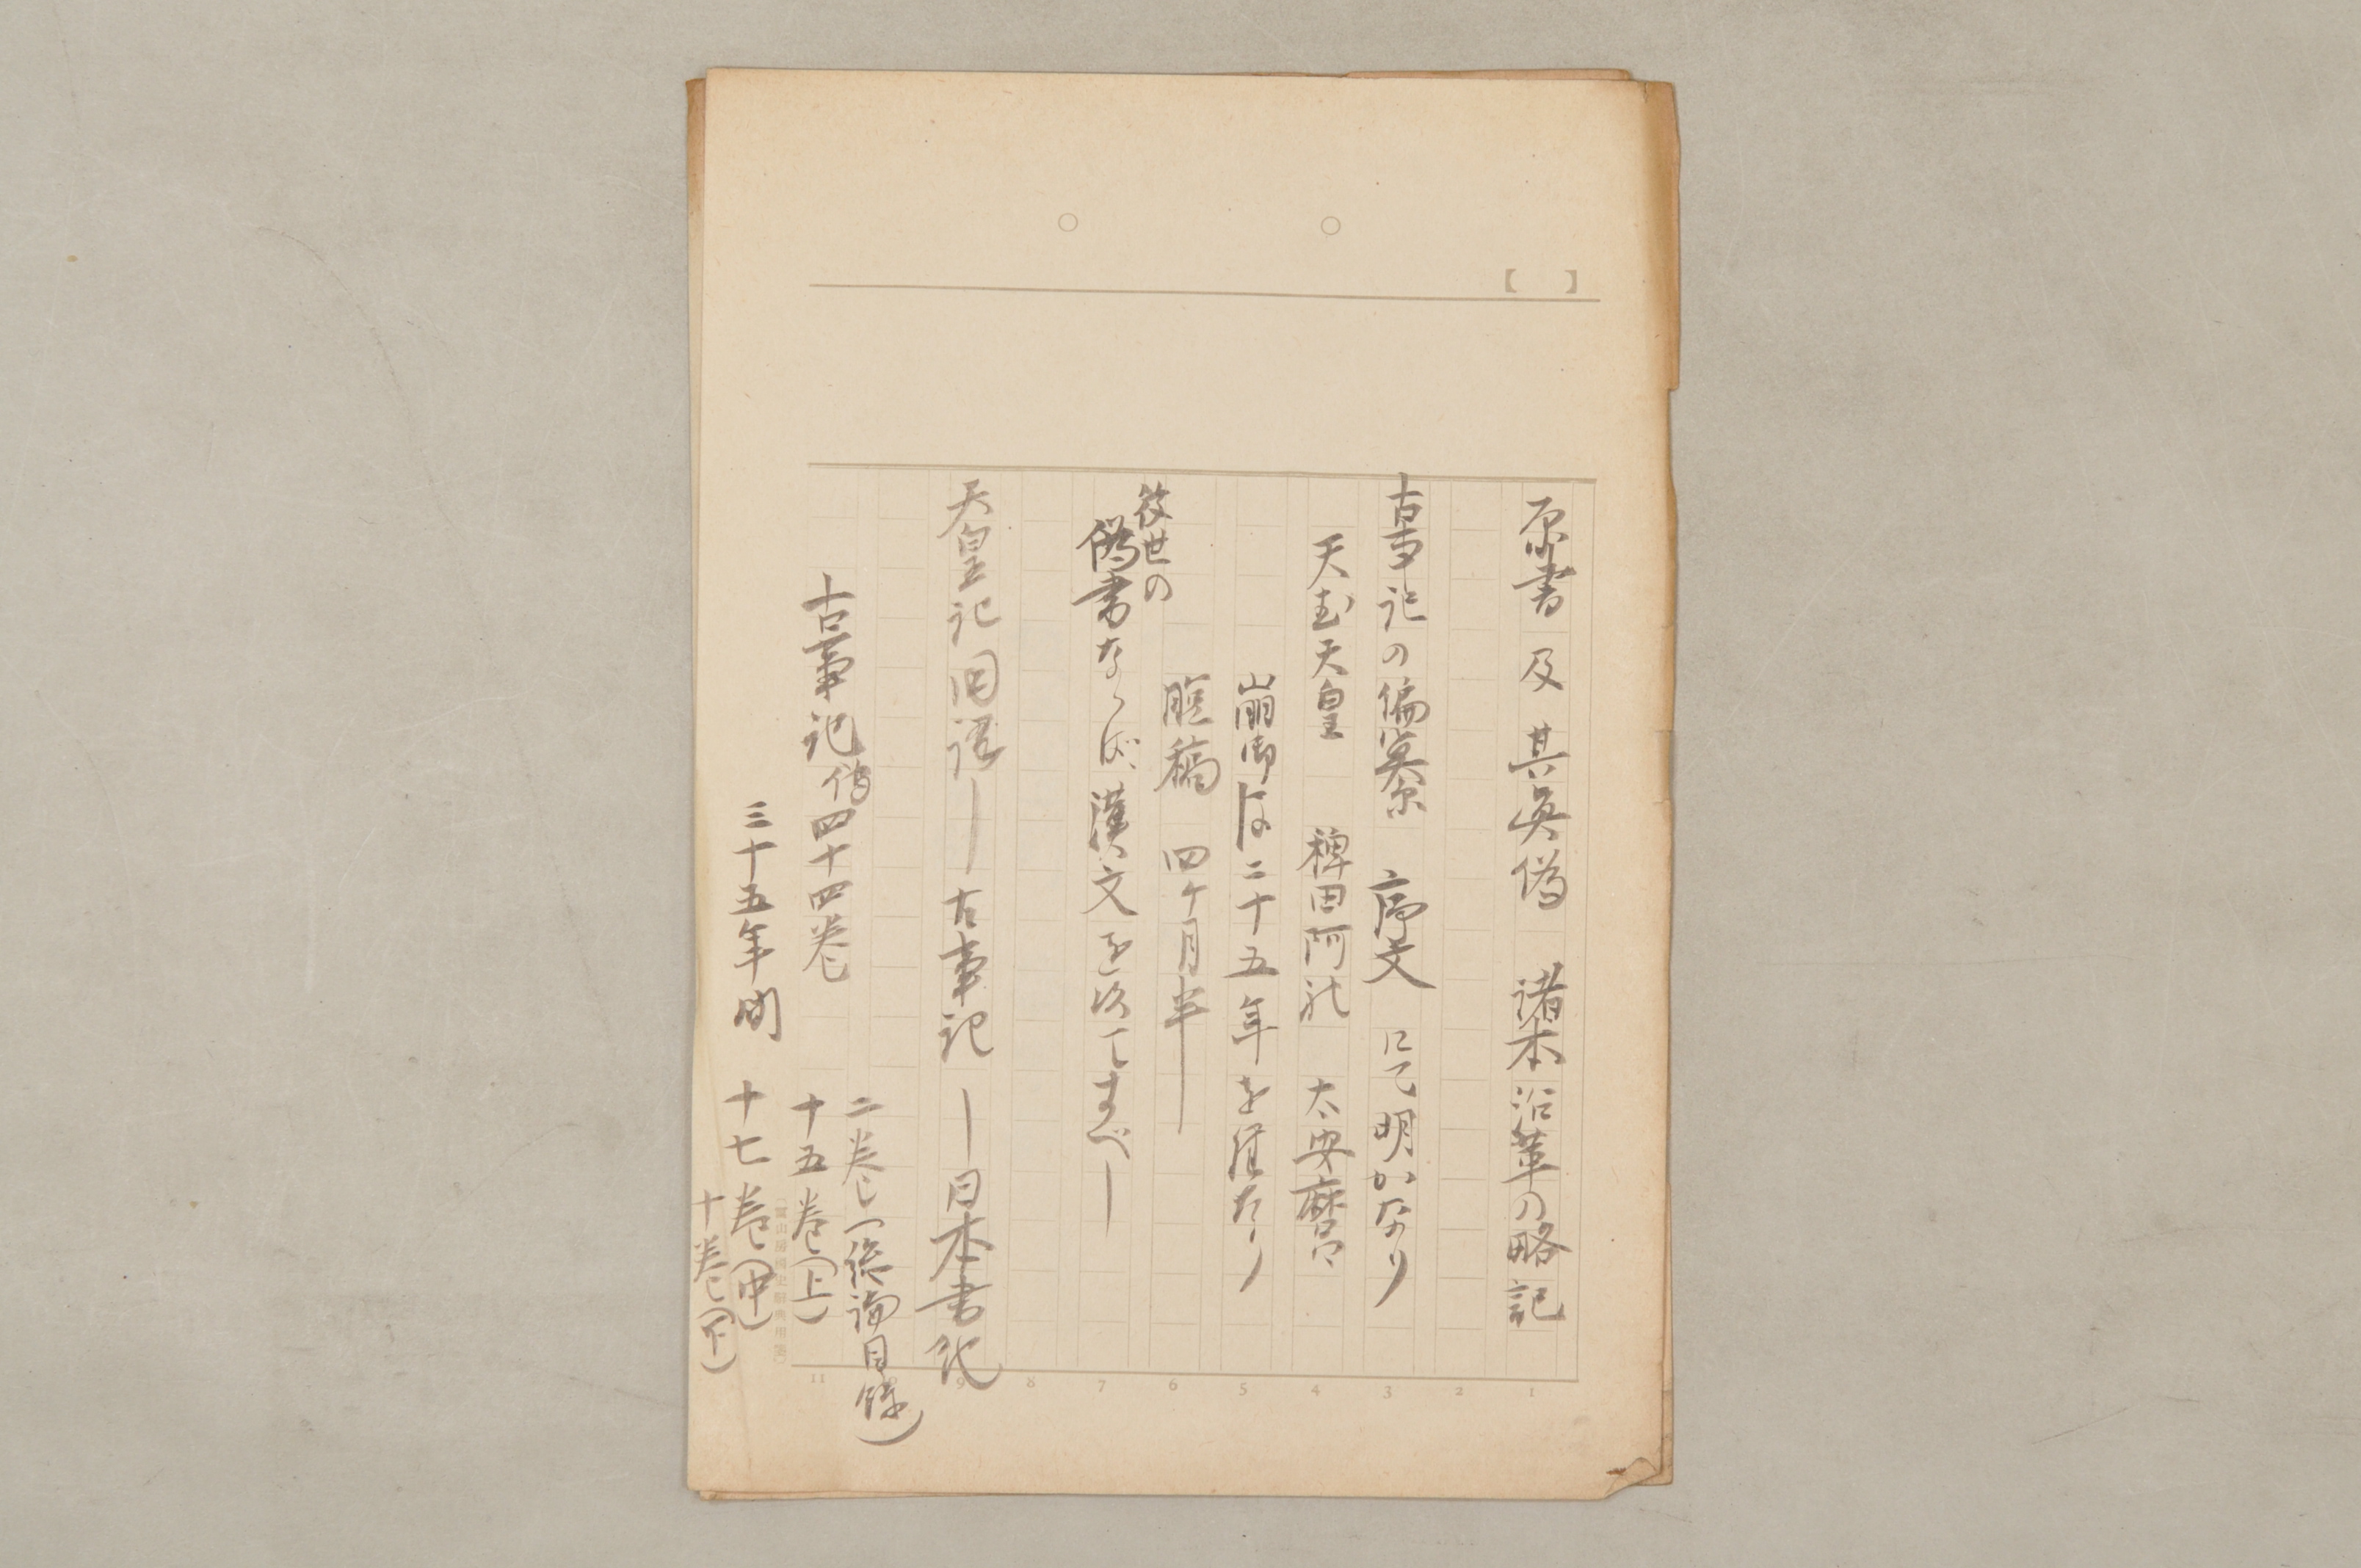 【 】
原書 及 其真偽 諸本沿革の略記
古事記の編纂 序文 にて明かなり
天武天皇 稗田阿礼 太安麿
崩御後二十五年を経たり
脱稿 四ケ月半
後世の
偽書ならば漢文を以てすべし
天皇記 旧語ー古事記ー日本書紀
古事記傳四十四巻
二巻(総論目録)
十五巻(上)
三十五年間 十七巻(中)
十巻(下)
1 2 3 4 5 6 7 8 9 11